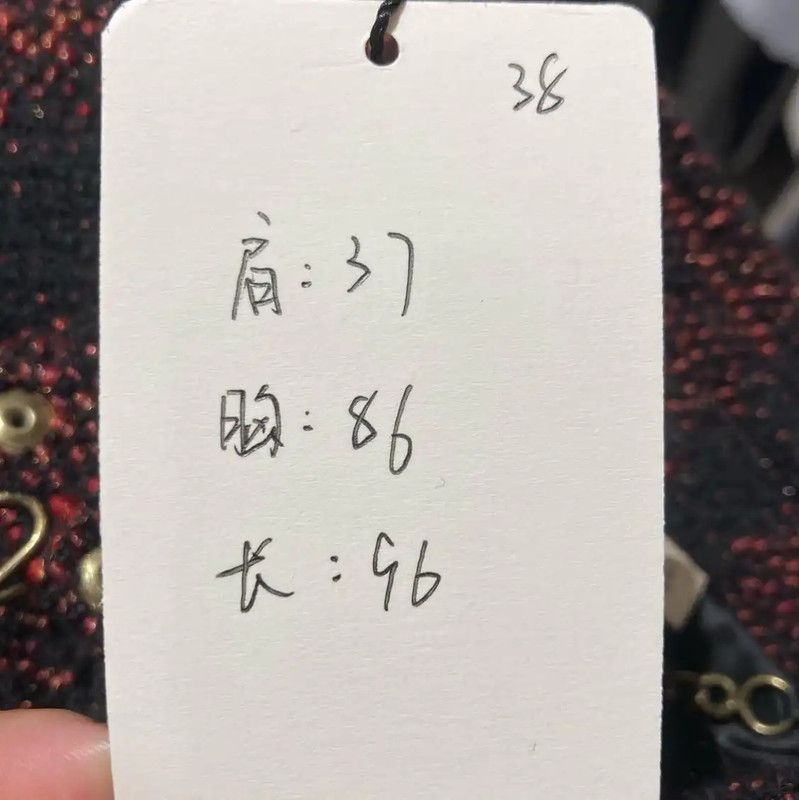 38
肩:37
胸:86
长:96